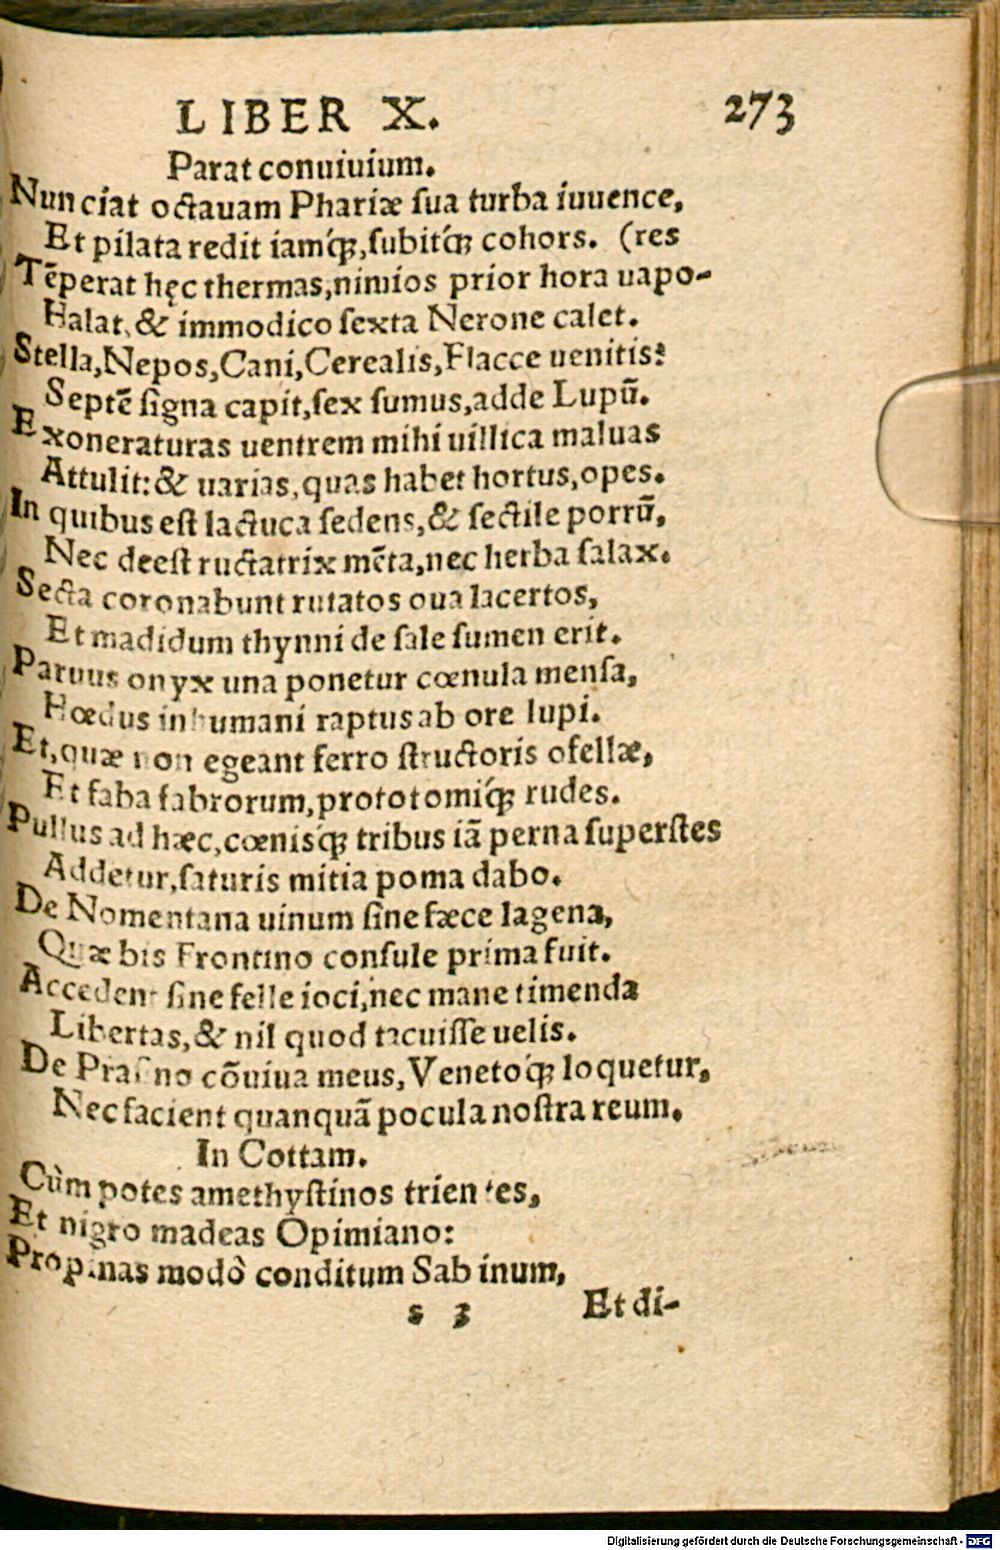 LIBER X. 273
Parat conuiuium.
Nunciat octauam Phariæ sua turba iuuence,
Et pilata redit iamq́ꝫ, subitq́ꝫ cohors. (res
Tẽperat hęc thermas, nimios prior hora uapo-
Halat, & immodico sexta Nerone calet.
Stella, Nepos, Cani, Cerealis, Flacce uenitis?
Septẽ signa capit, sex sumus, adde Lupũ.
Exoneraturas uentrem mihi uillica maluas
Attulit: & uarias, quas habet hortus, opes.
In quibus est lactuca sedens, & sectile porrũ,
Nec deest ructatrix mẽta, nec herba salax.
Secta coronabunt rutatos oua lacertos,
Et madidum thynni de sale sumen erit.
Paruus onyx una ponetur cœnula mensa,
Hœdus inhumani raptus ab ore lupi.
Et, quæ non egeant ferro structoris ofellæ,
Et faba fabrorum, prototomiq́ꝫ rudes.
Pullus ad hæc, cœnisq́ꝫ tribus iã perna superstes
Addetur, saturis mitia poma dabo.
De Nomentana uinum sine fæce lagena,
Quæ bis Frontino consule prima fuit.
Accedent sine felle ioci, nec mane timenda
Libertas, & nil quod tacuisse uelis.
De Prasino cõuiua meus, Venetoq́ꝫ loquetur,
Nec facient quanquã pocula nostra reum.
In Cottam.
Cùm potes amethystinos trientes,
Et nigro madeas Opimiano:
Propinas modò conditum Sabinum,
s 3 Et di-
Digitalisierung gefördert durch die Deutsche Forschungsgemeinschaft - DFG